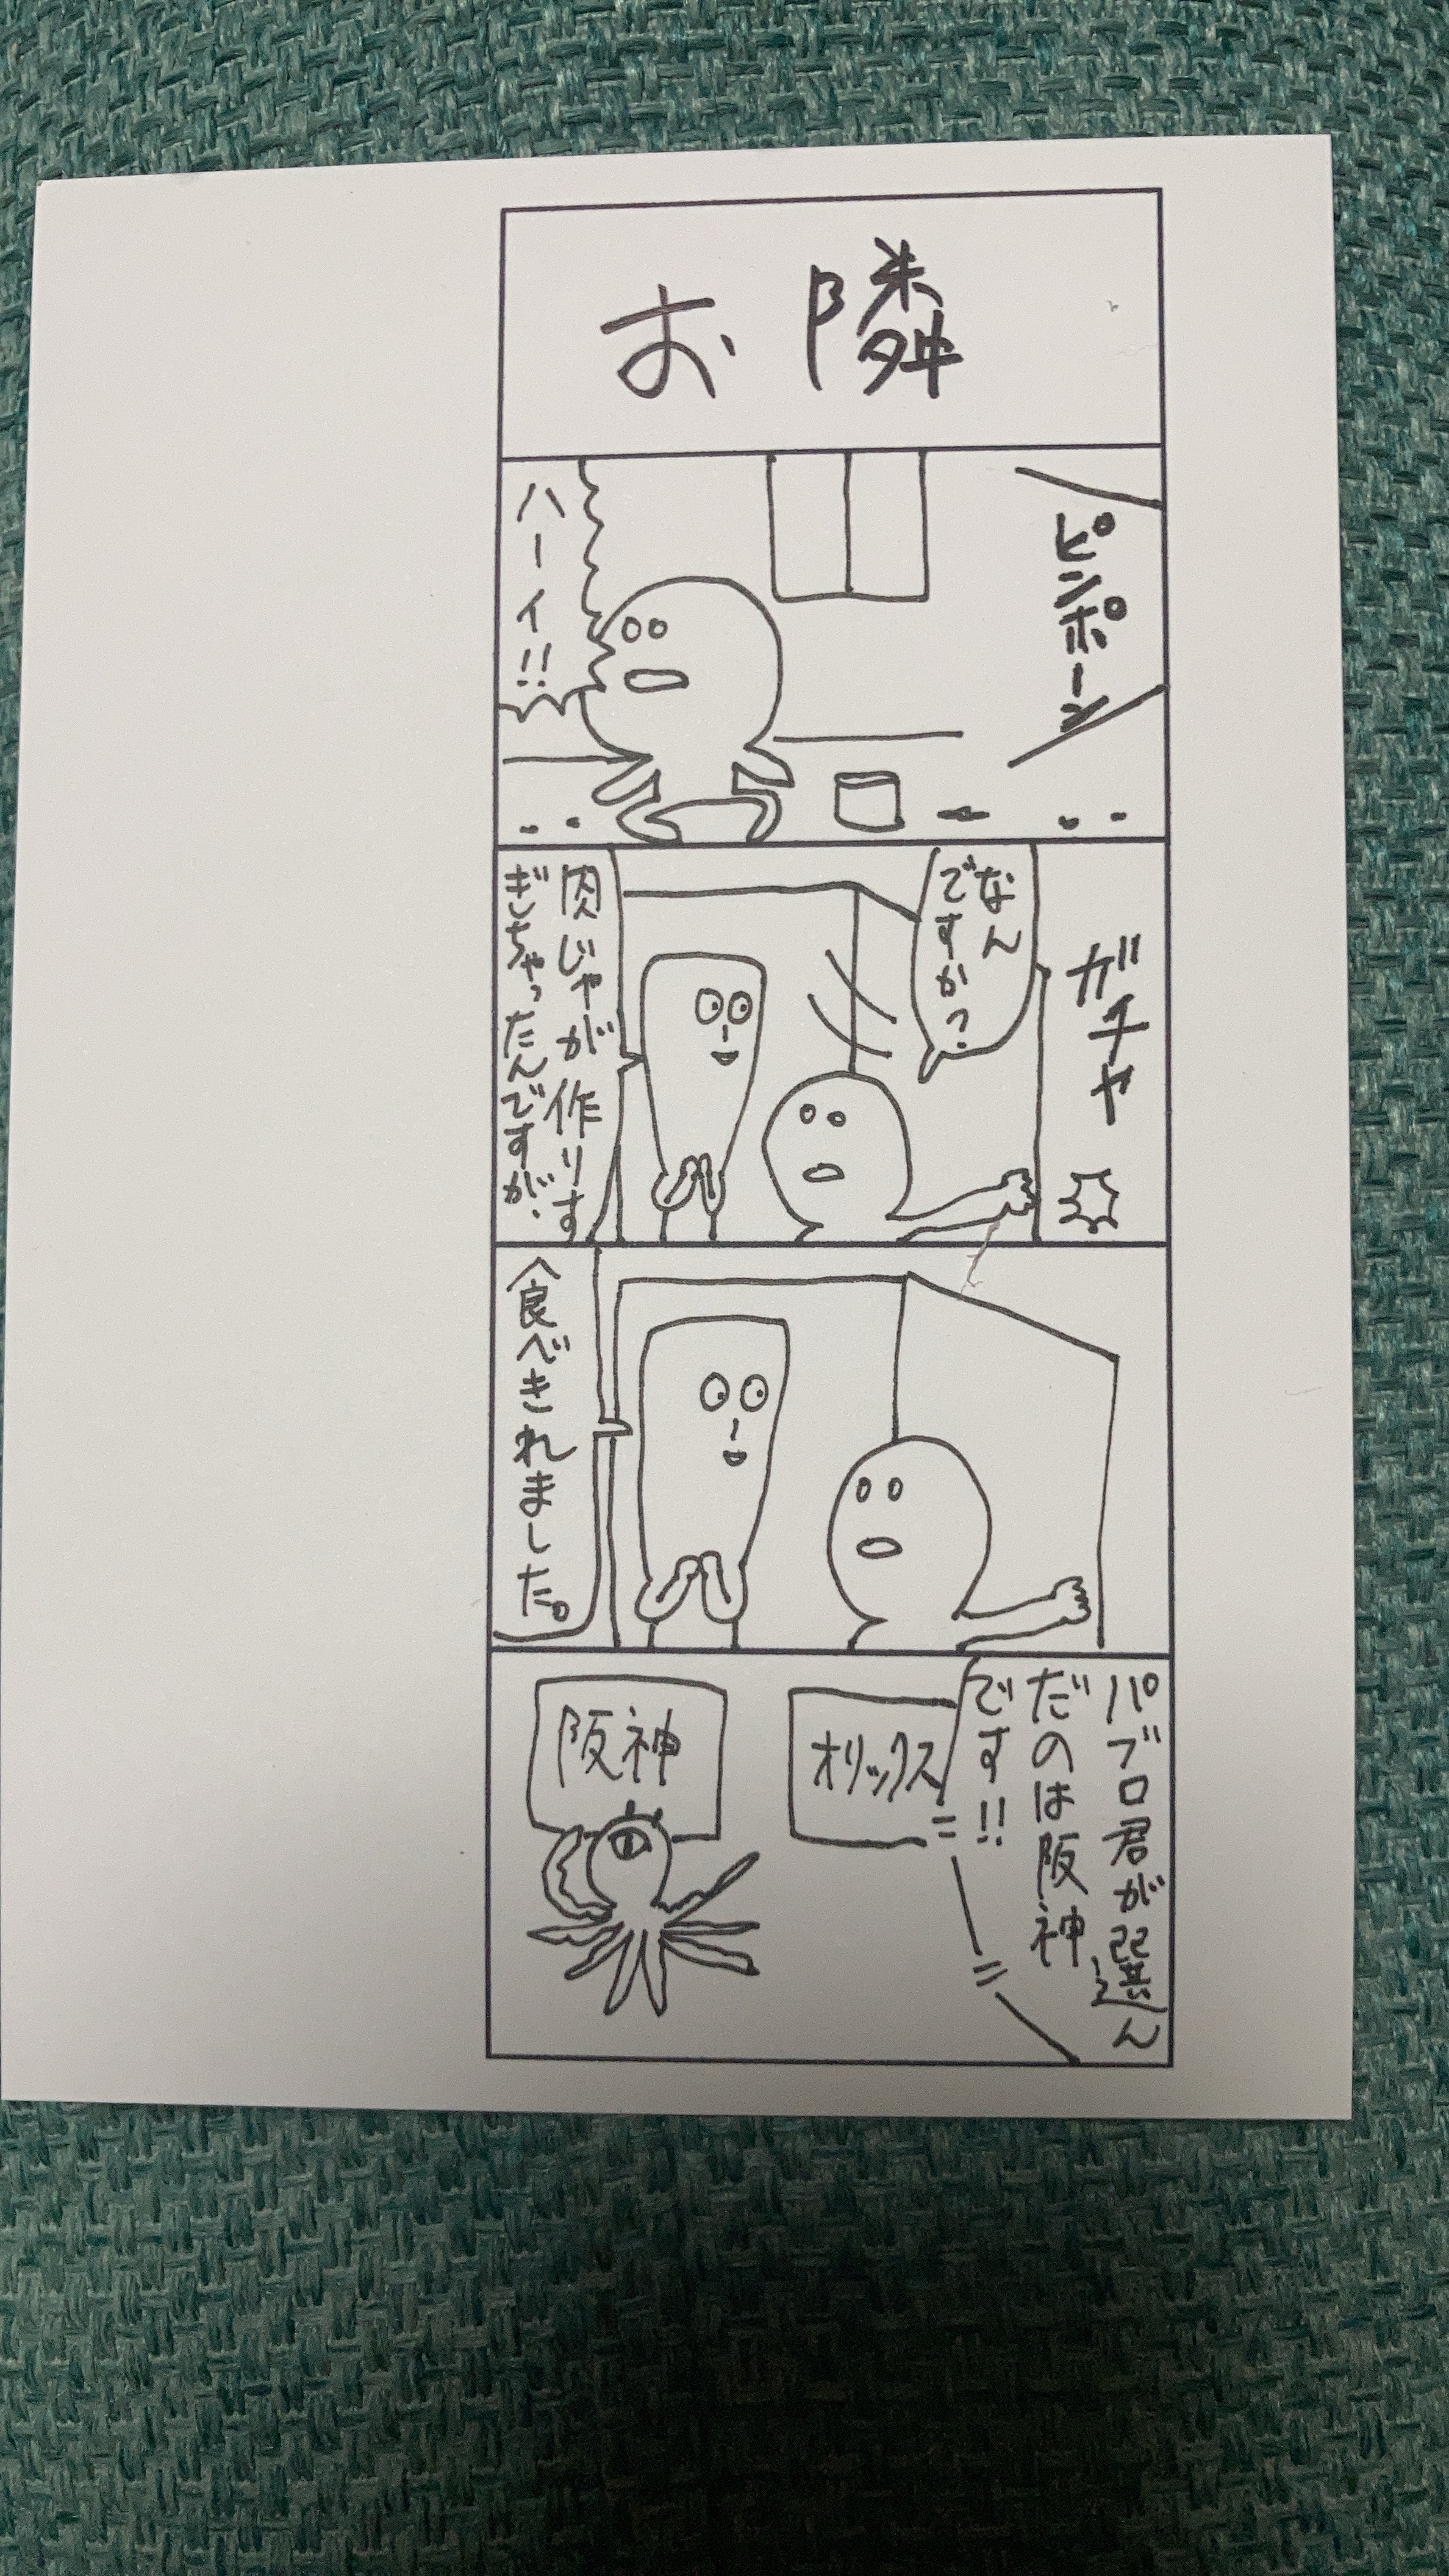 お隣
ピンポーン
ハーイ!!
ガチャ
なん
ですかっ?
肉じゃが作りす
ぎちゃったんですが、
食べきれました。
パブロ君が選ん
だのは阪神
です!!
オリックス
阪神